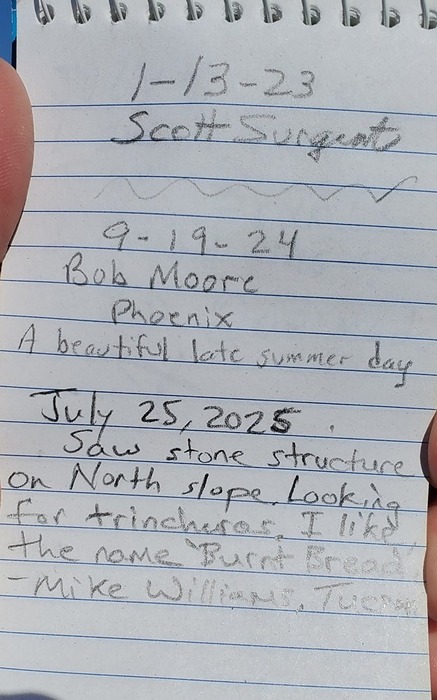 1-13-23
Scott Surgent
9-19-24
Bob Moore
Phoenix
A beautiful late summer day
July 25, 2025.
Saw stone structure
on North slope. Looking
for trincheras. I like
the name "Burnt Bread"
-Mike Williams, Tucson